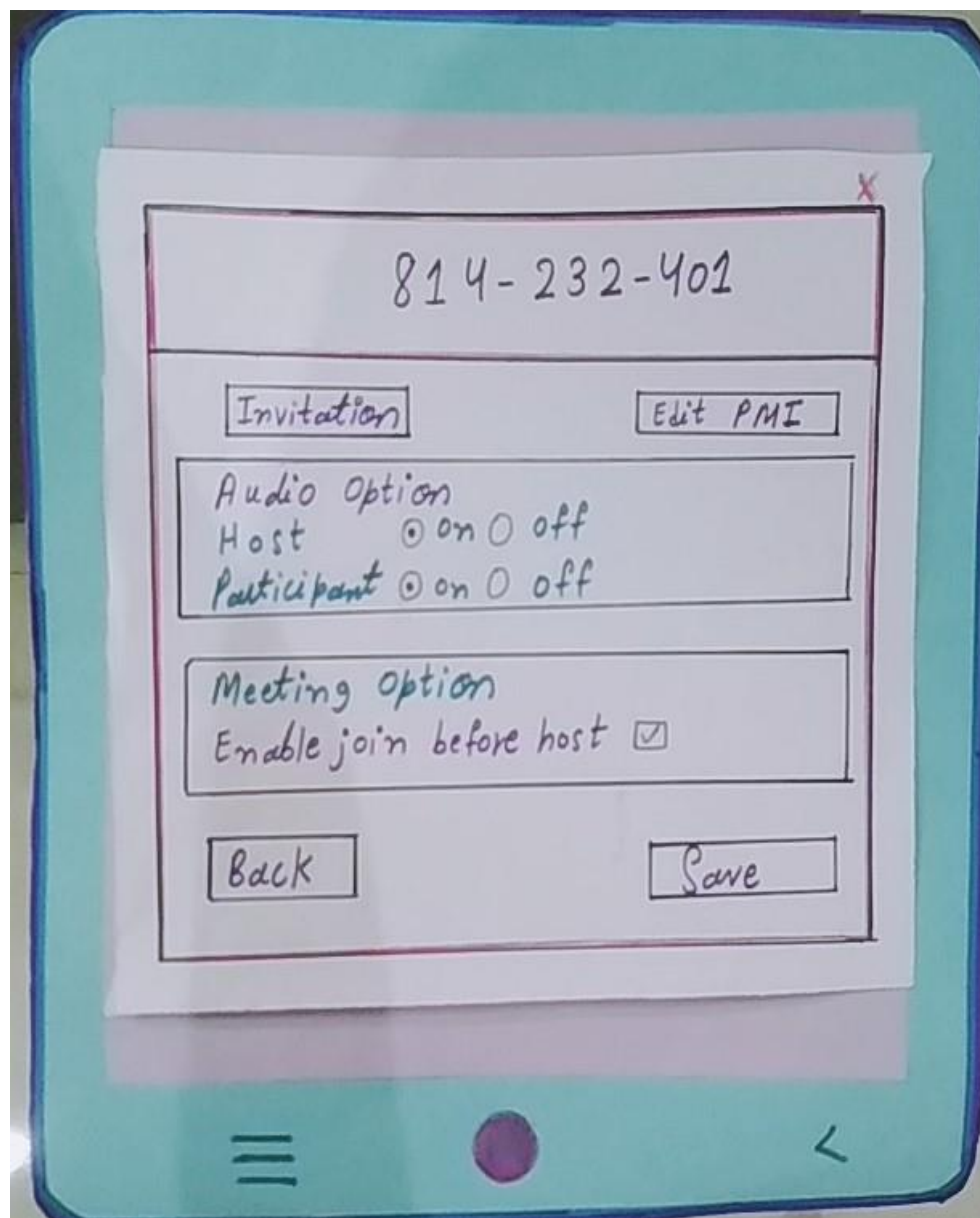 X
814-232-401
Invitation
Edit PMI
Audio Option
Host on off
Participant on off
Meeting Option
Enable join before host
Back
Save